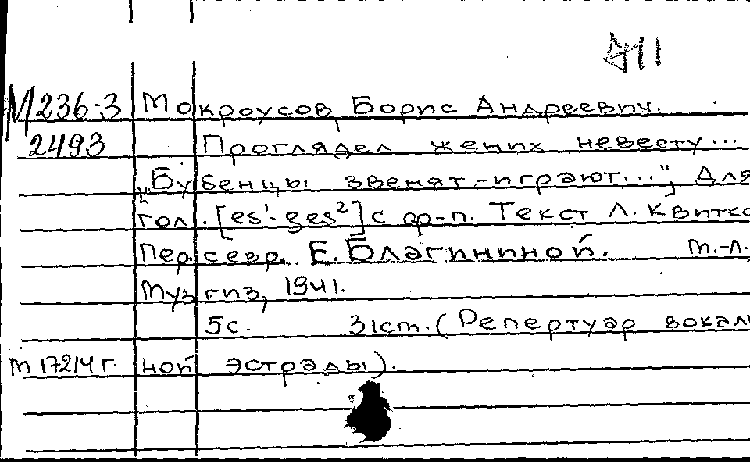 М236-3 Мокроусов Борис Андреевич.
2493 Проглядел жених невесту...
„Бубенцы звенят-играют...", Для
гол. [es¹-ges²] с ф-п. Текст Л. Квитко
Пер. с евр. Е. Благининой. М.-Л.
Музгиз, 1941.
5с. 31см. (Репертуар вокаль
М 172/4 г. ной эстрады).